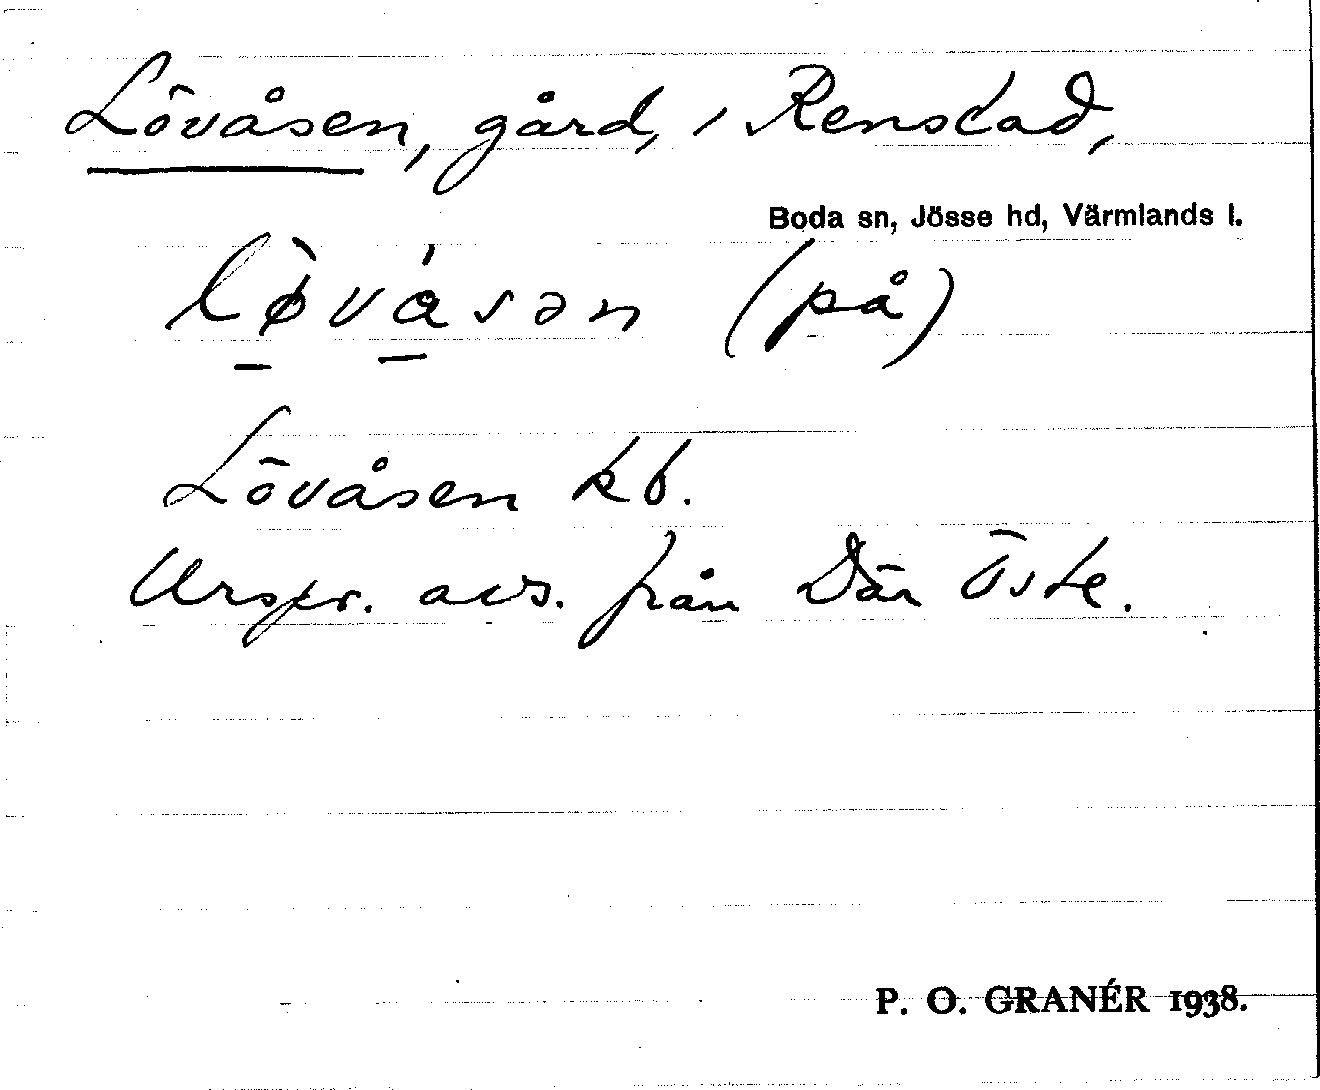 Lövåsen, gård, i Renstad,
Boda sn, Jösse hd, Värmlands l.
lø̱̀vá̱sən (på)
Lövåsen kb.
Urspr. avs. från Där Öste.
P. O. GRANÉR 1938.